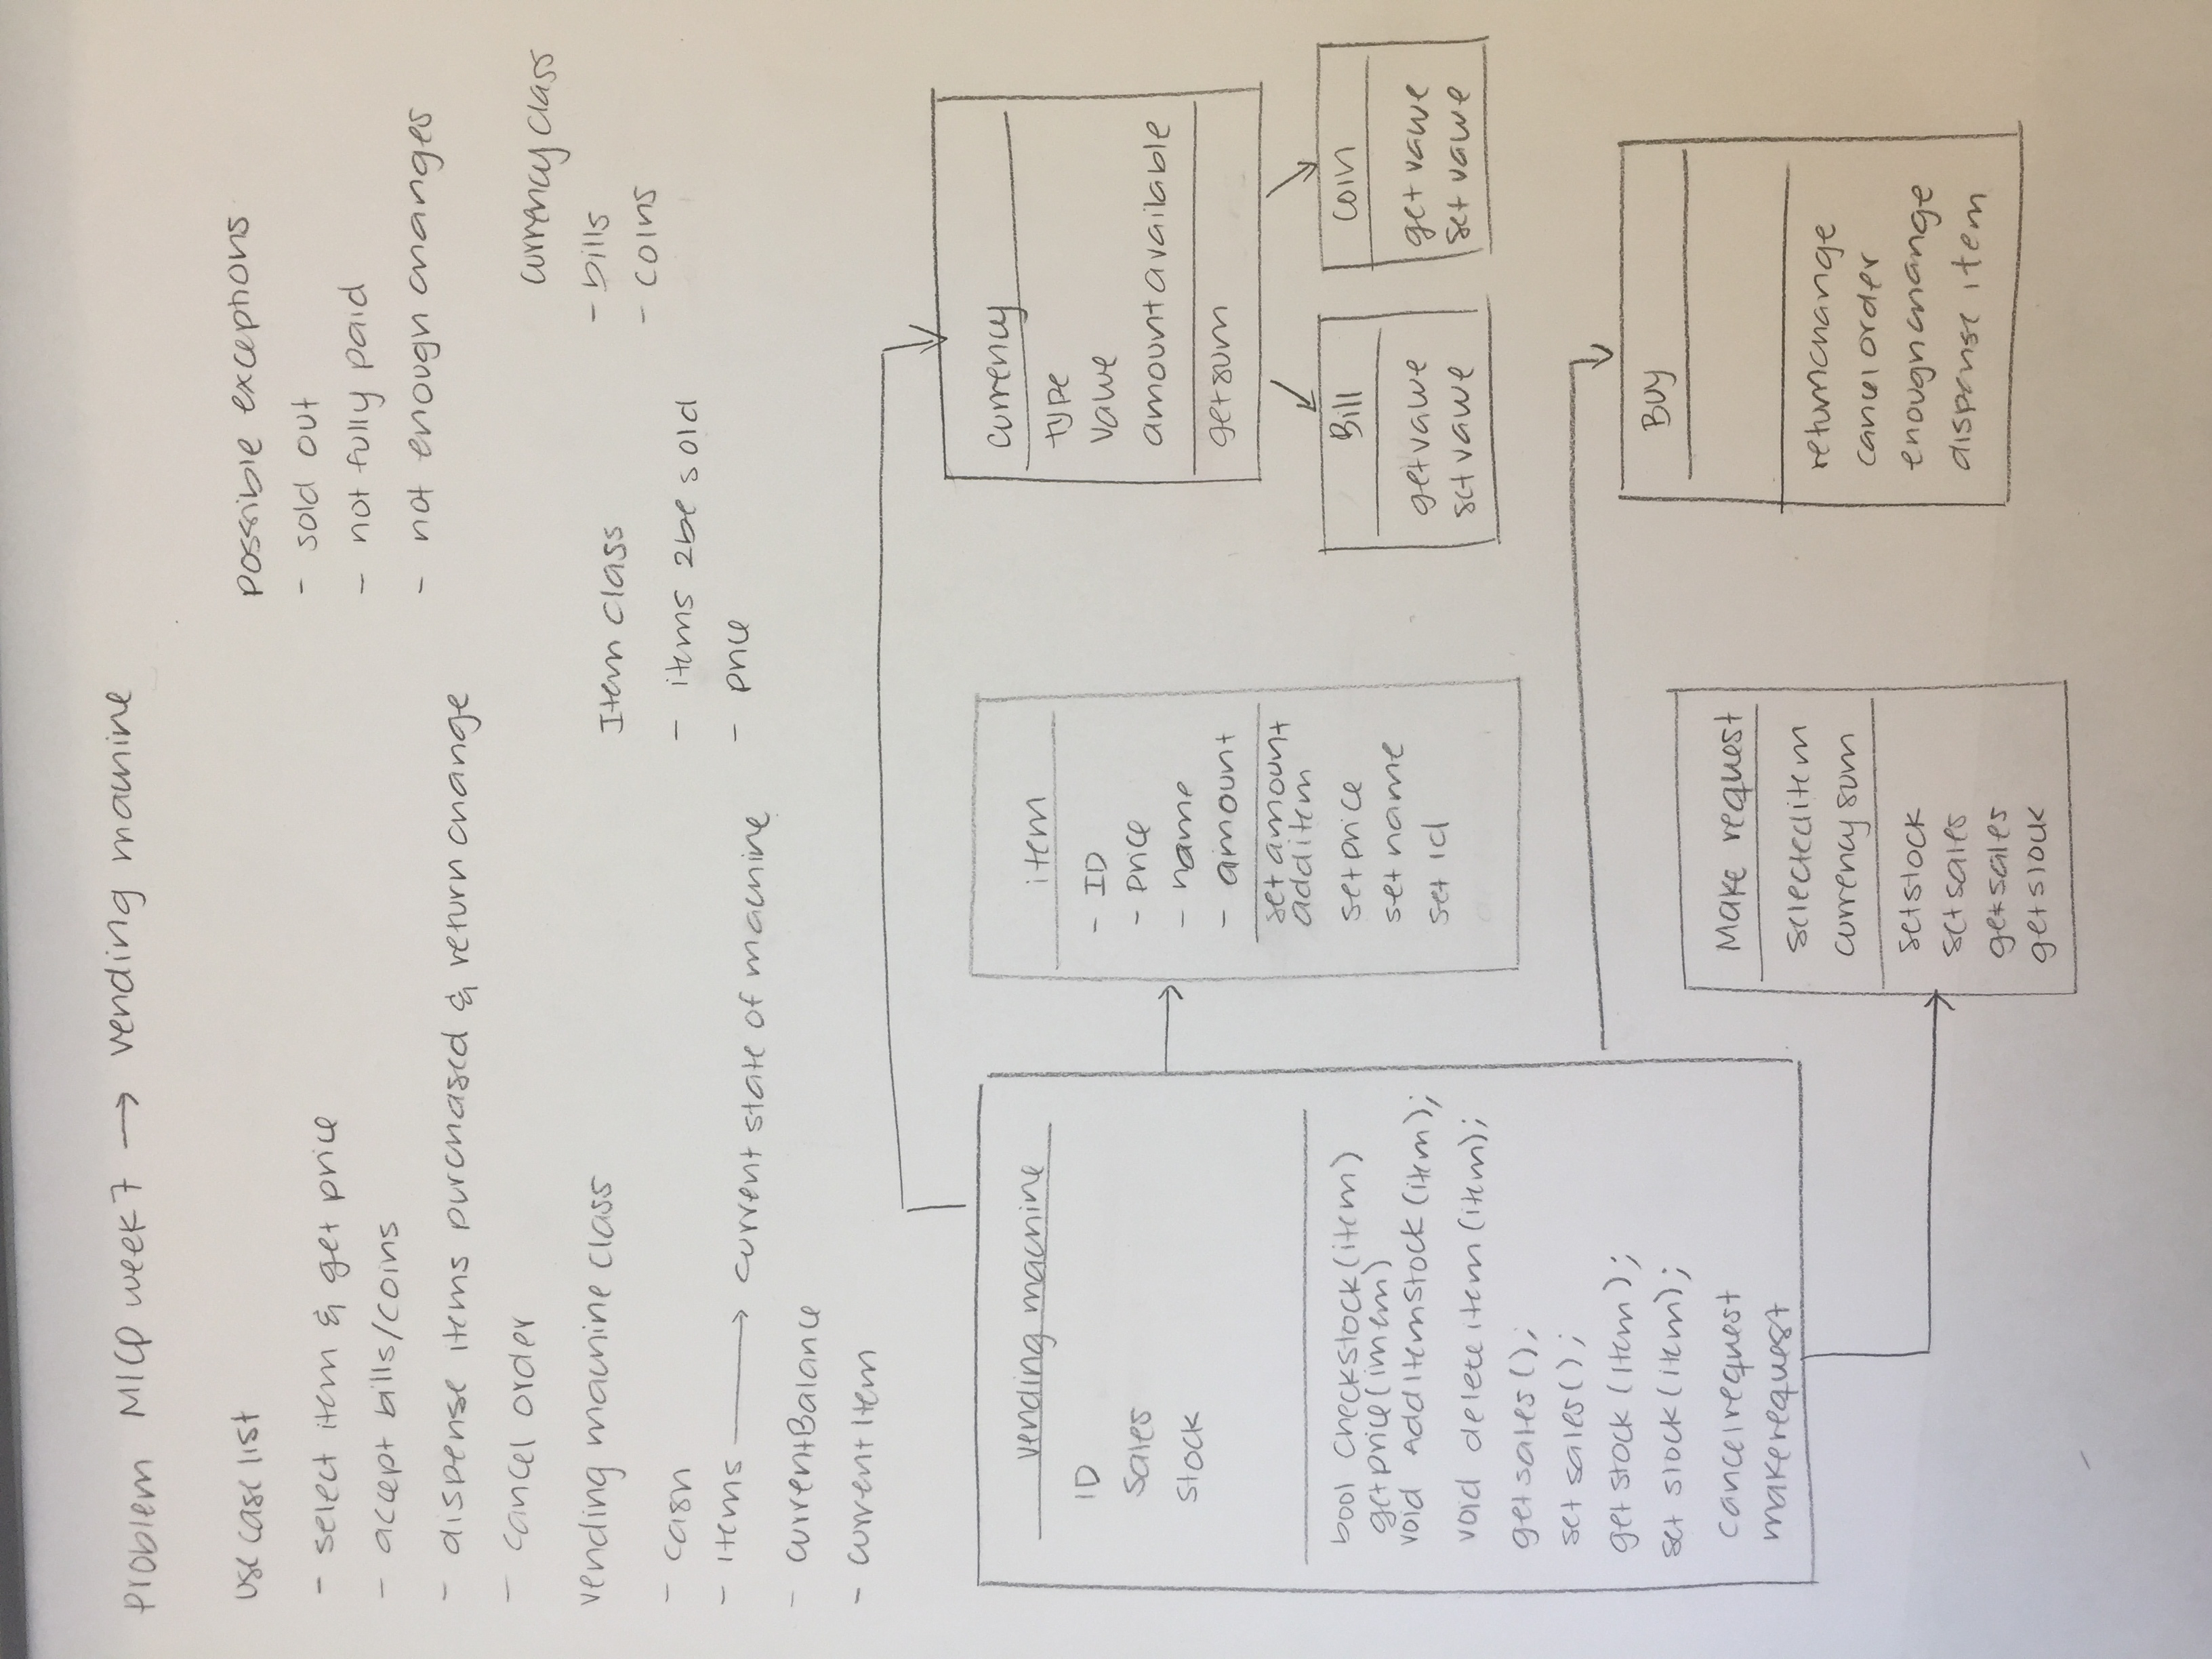 Problem MICP week 7 → vending machine
use case list
- select item & get price
- accept bills/coins
- dispense items purchased & return change
- cancel order
possible exceptions
- sold out
- not fully paid
- not enough changes
vending machine class
- cash
- items → current state of machine
- currentBalance
- current Item
Item class
- items 2be sold
- price
currency class
- bills
- coins
vending machine
ID
sales
stock
bool checkstock(item)
getprice(imem)
void AddItemStock(item);
void deleteitem(item);
getsales();
setsales();
getstock(item);
set stock(item);
cancelrequest
makerequest
item
- ID
- price
- name
- amount
set amount
additem
setprice
set name
set id
currency
type
value
amountavailable
getsum
Bill
getvalue
setvalue
coin
get value
set value
Make request
selecteditem
currency sum
setstock
setsales
getsales
getstock
Buy
returnchange
cancelorder
enoughchange
dispense item